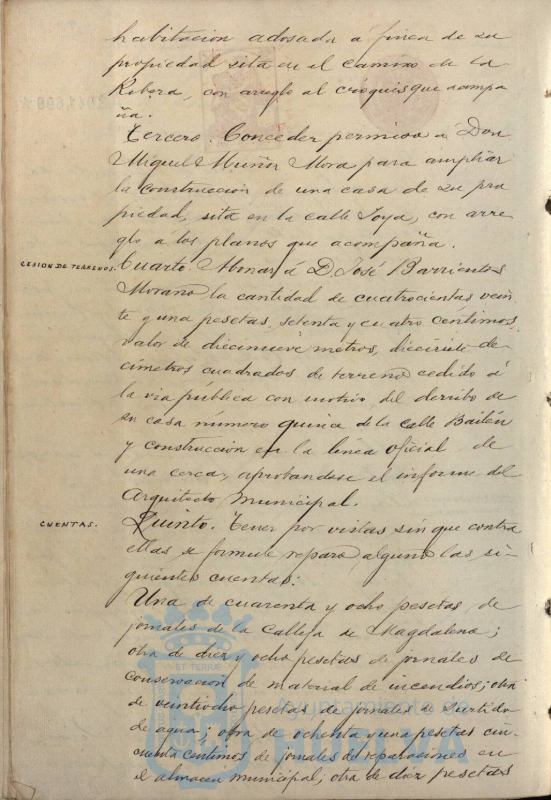 habitacion adosada a finca de su
propiedad sita en el camino de la
Ribera, con arreglo al croquis que acompa
ña.
Tercero. Conceder permiso á Don
Miguel Muñoz Mora para ampliar
la construccion de una casa de su pro
piedad, sita en la calle Joya, con arre
glo á los planos que acompaña.
CESION DE TERRENOS.
Cuarto. Abonar á D. José Barrientos
Moraño la cantidad de cuatrocientas vein
te y una pesetas, setenta y cuatro céntimos,
valor de diecinueve metros, diecisiete de-
címetros cuadrados de terreno cedido á
la via pública con motivo del derribo de
su casa número quince de la calle Bailén
y construccion en la línea oficial de
una cerca, aprobandose el informe del
Arquitecto Municipal.
CUENTAS.
Quinto. Tener por vistas sin que contra
ellas se formule reparo alguno las si-
guientes cuentas:
Una de cuarenta y ocho pesetas, de
jornales de la Calleja de Magdalena;
otra de diez y ocho pesetas de jornales de
conservacion de material de incendios; otra
de veintiocho pesetas de jornales de surtido
de agua; otra de ochenta y una pesetas cin-
cuenta centimos de jornales de reparaciones en
el almacen municipal; otra de diez pesetas
ET TERRÆ
Ayuntamiento de
HUELVA